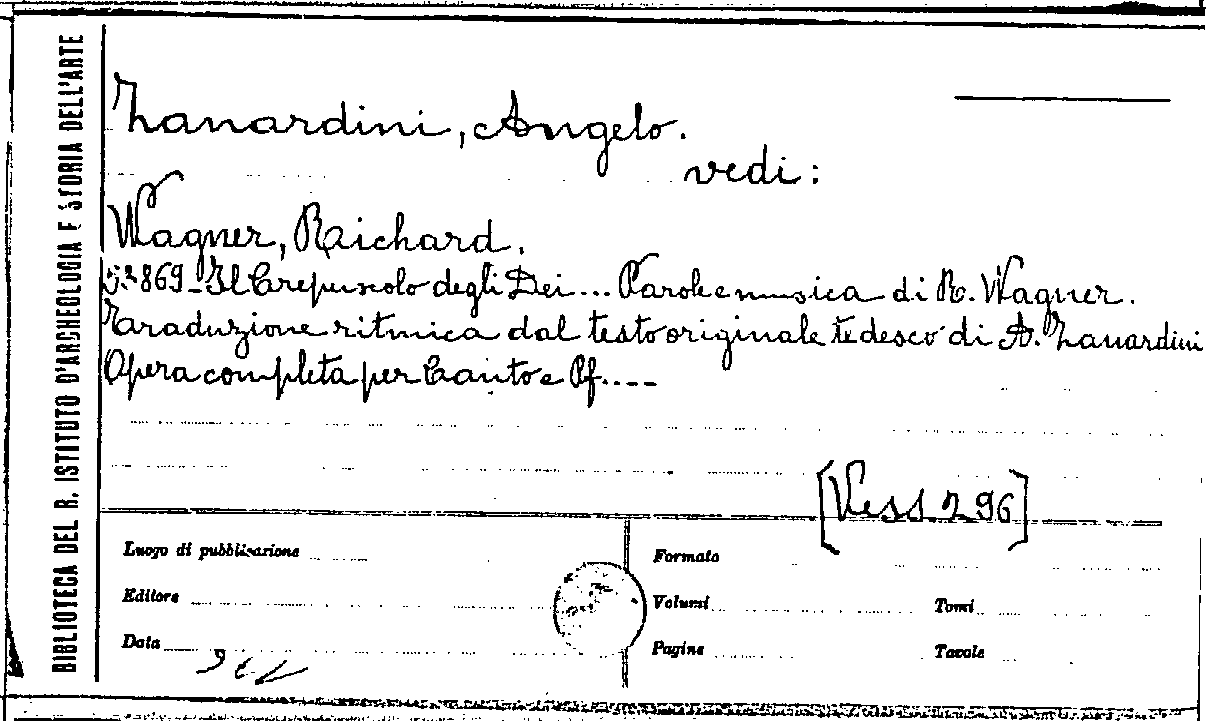 BIBLIOTECA DEL R. ISTITUTO D'ARCHEOLOGIA E STORIA DELL'ARTE
Zanardini, Angelo.
vedi:
Wagner, Raichard.
869 - Il Crepuscolo degli Dei... Parole e musica di R. Wagner.
Traduzione ritmica dal testo originale tedesco di A. Zanardini
Opera completa per Canto e Pf....
[Vess. 296]
Luogo di pubblicazione
Formato
Editore
Volumi
Tomi
Data
Pagine
Tavole